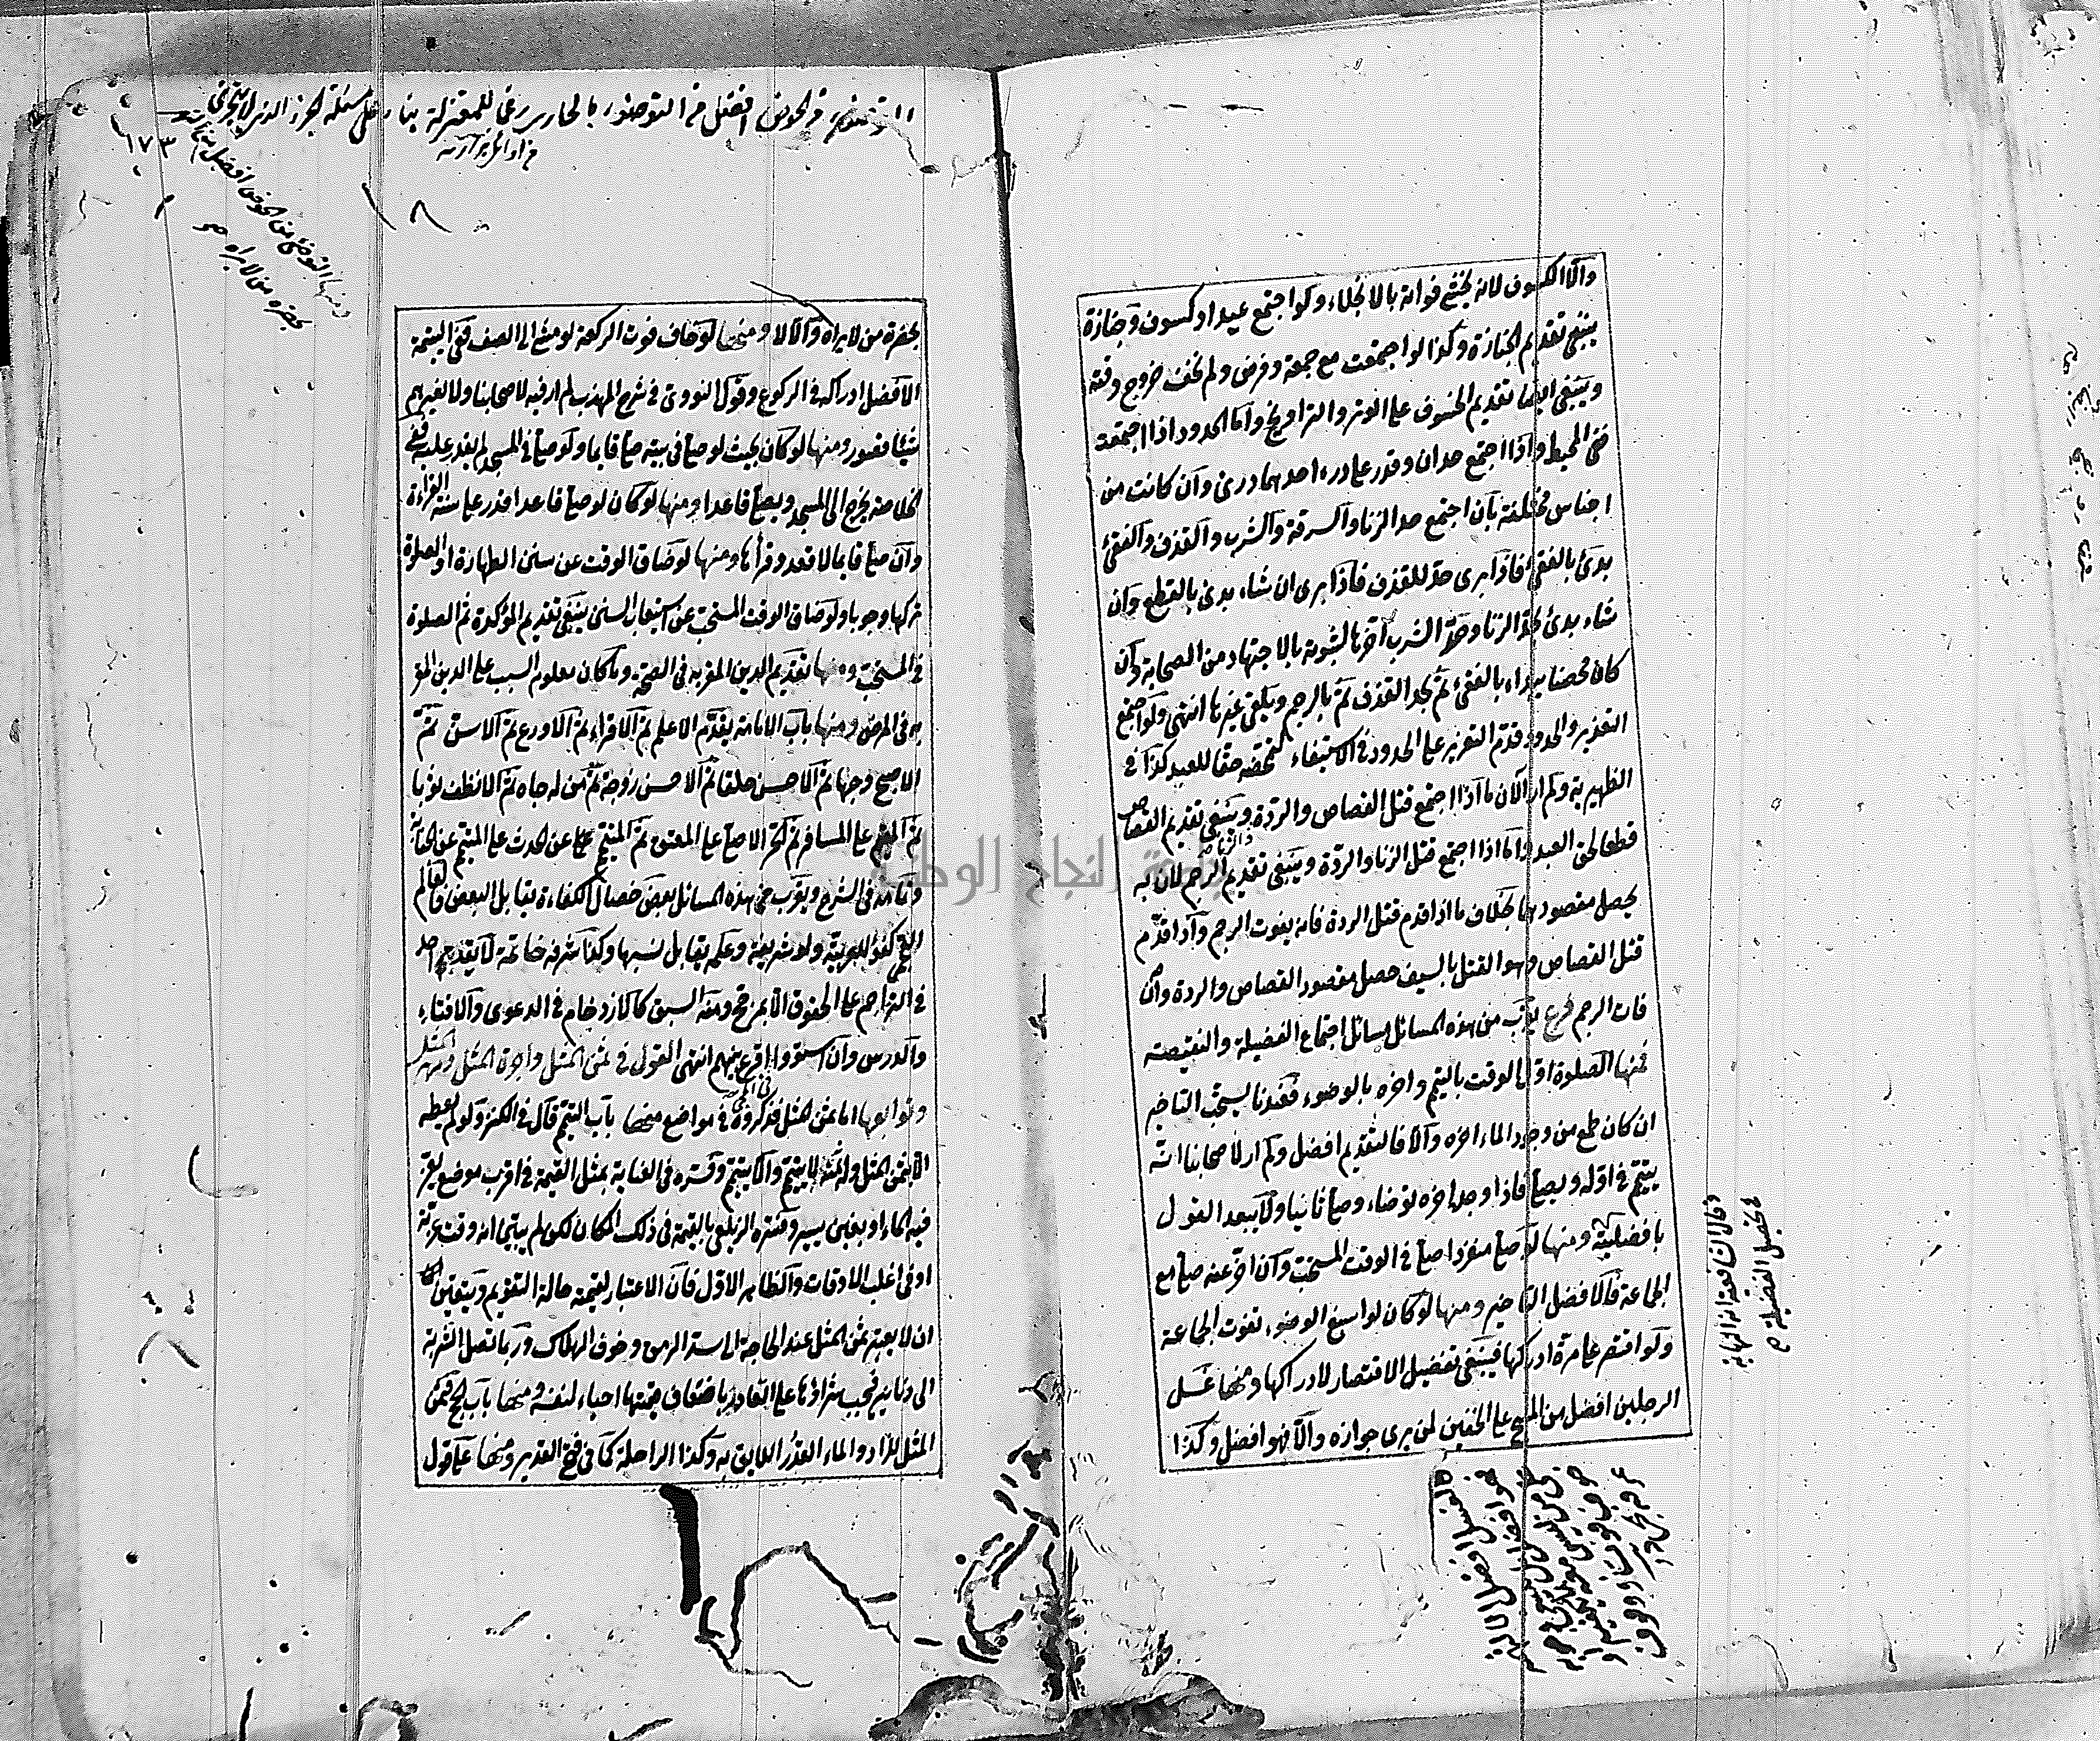 والا الكسوف لانه يخشى فواته بالانجلاء ولو اجتمع عيد او كسوف وجنازة
ينبغي تقديم الجنازة وكذا لو اجتمعت مع جمعة وفرض ولم يخف خروج وقته
وينبغي ايضا تقديم الخسوف على الوتر والتراويح واما الحدود اذا اجتمعت
ففي المحيط واذا اجتمع حدان وقدر على درء احدهما درئ وان كانت من
اجناس مختلفة بان اجتمع حد الزنا والسرقة والشرب والقذف والفقئ
بدئ بالفقئ فاذا برى حد للقذف فاذا برى ان شاء بدئ بالقطع وان
شاء بدئ بحد الزنا وحد الشرب آخرها لثبوته بالاجتهاد من الصحابة وان
كان محصنا يبداء بالفقئ ثم بحد القذف ثم بالرجم ويلغى غيرها انتهى ولو اجتمع
التعزير والحدود قدم التعزير على الحدود في الاستيفاء لتمحضه حقا للعبد كذا في
الظهيرية ولم ار الآن ما اذا اجتمع قتل القصاص والردة وينبغي تقديم القصاص
قطعا لحق العبد واما اذا اجتمع قتل الزنا والردة وينبغي تقديم الرجم لان به
يحصل مقصودهما بخلاف ما اذا قدم قتل الردة فانه يفوت الرجم واذا قدم
قتل القصاص وهو القتل بالسيف حصل مقصود القصاص والردة وان
فات الرجم فرع يقرب من هذه المسائل مسائل اجتماع الفضيلة والنقيصة
فمنها الصلوة اول الوقت بالتيمم واخره بالوضوء فعندنا يستحب التاخير
ان كان طمع من وجود الماء اخره والا فالتقديم افضل ولم ار لاصحابنا انه
يتيمم في اوله ويصلي فاذا وجد اخره توضاء وصلى ثانيا ولا يبعد القول
بافضليته ومنها لو صلى منفردا صلى في الوقت المستحب وان اخر عنه صلى مع
الجماعة فالافضل التاخير ومنها لو كان لو اسبغ الوضوء تفوت الجماعة
ولو اقتصر على مرة ادركها فينبغي تفضيل الاقتصار لادراكها ومنها غسل
الرجلين افضل من المسح على الخفين لمن يرى جوازه والا فهو افضل وكذا
وقال الشافعية انه النهاية
لتحصيل الفضيلة
التوضئ من الحوض افضل من التوضئ بالجاري رغما للمعتزلة بناء على مسئلة الجزء الذي لا يتجزى
١٧٣
ومنها التوضئ من الحوض افضل
بحضرة من لا يراه
١٨
بحضرة من لا يراه والا لا ومنها لو خاف فوت الركعة لو مشى الى الصف ففي اليتيمة
الافضل ادراكه في الركوع وقول النووي في شرح المهذب لم ار فيه لاصحابنا ولا لغيرهم
شيئا قصور ومنها لو كان بحيث لو صلى في بيته صلى قايما ولو صلى في المسجد لم يقدر عليه ففي
الخلاصة يخرج الى المسجد ويصلي قاعدا ومنها لو كان لو صلى قاعدا قدر على سنة القراءة
وان صلى قايما لا قعد وقرأها ومنها لو ضاق الوقت عن سنن الطهارة او الصلوة
تركها وجوبا ولو ضاق الوقت المستحب عن استيعاب السنن ينبغي تقديم المؤكدة ثم الصلوة
في المستحب ومنها تقديم الدين المقر به في الصحة وما كان معلوم السبب على الدين المقر
به في المرض ومنها باب الامامة يقدم الاعلم ثم الاقراء ثم الاورع ثم الاسن ثم
الاصبح وجها ثم الاحسن خلقا ثم الاحسن زوجة ثم من له جاه ثم الانظف ثوبا
ثم المقيم على المسافر ثم الحر الاصلي على المعتق ثم المتيمم عن الحدث على المتيمم عن الجنابة
وتمامه في الشرح ويقرب من هذه المسائل بعض خصال الكفاءة تقابل البعض فالعالم
العجمي كفؤ للعربية ولو شريفة وعلمه يقابل نسبها وكذا شرفه خاتمة لا يقدم احد
في التزاحم على الحقوق الا بمرجح ومنه السبق كالازدحام في الدعوى والافتاء
والدرس وان استووا اقرع بينهم انتهى القول في ثمن المثل واجرة المثل ومهر المثل
وتوابعها اما ثمن المثل فذكروه في مواضع منها باب التيمم قال في الكنز ولو لم يعطه
الا بثمن المثل وله ثمنه لا يتيمم والا يتيمم وفسره في العناية بمثل القيمة في اقرب موضع يعز
فيه الماء او بغبن يسير وفسره الزيلعي بالقيمة في ذلك المكان لكن لم يبين انه وقت عزته
او في اغلب الاوقات والظاهر الاول فان الاعتبار لقيمته حالة التقويم ويتعين
ان لا يعتبر ثمن المثل عند الحاجة الى سد الرمق وخوف الهلاك وربما تصل الشربة
الى دنانير فيجب شراؤها على القادر باضعاف قيمتها احياء لنفسه ومنها باب الحج فثمن
المثل للزاد والماء القدر اللايق به وكذا الراحلة كما في فتح القدير ومنها على قول